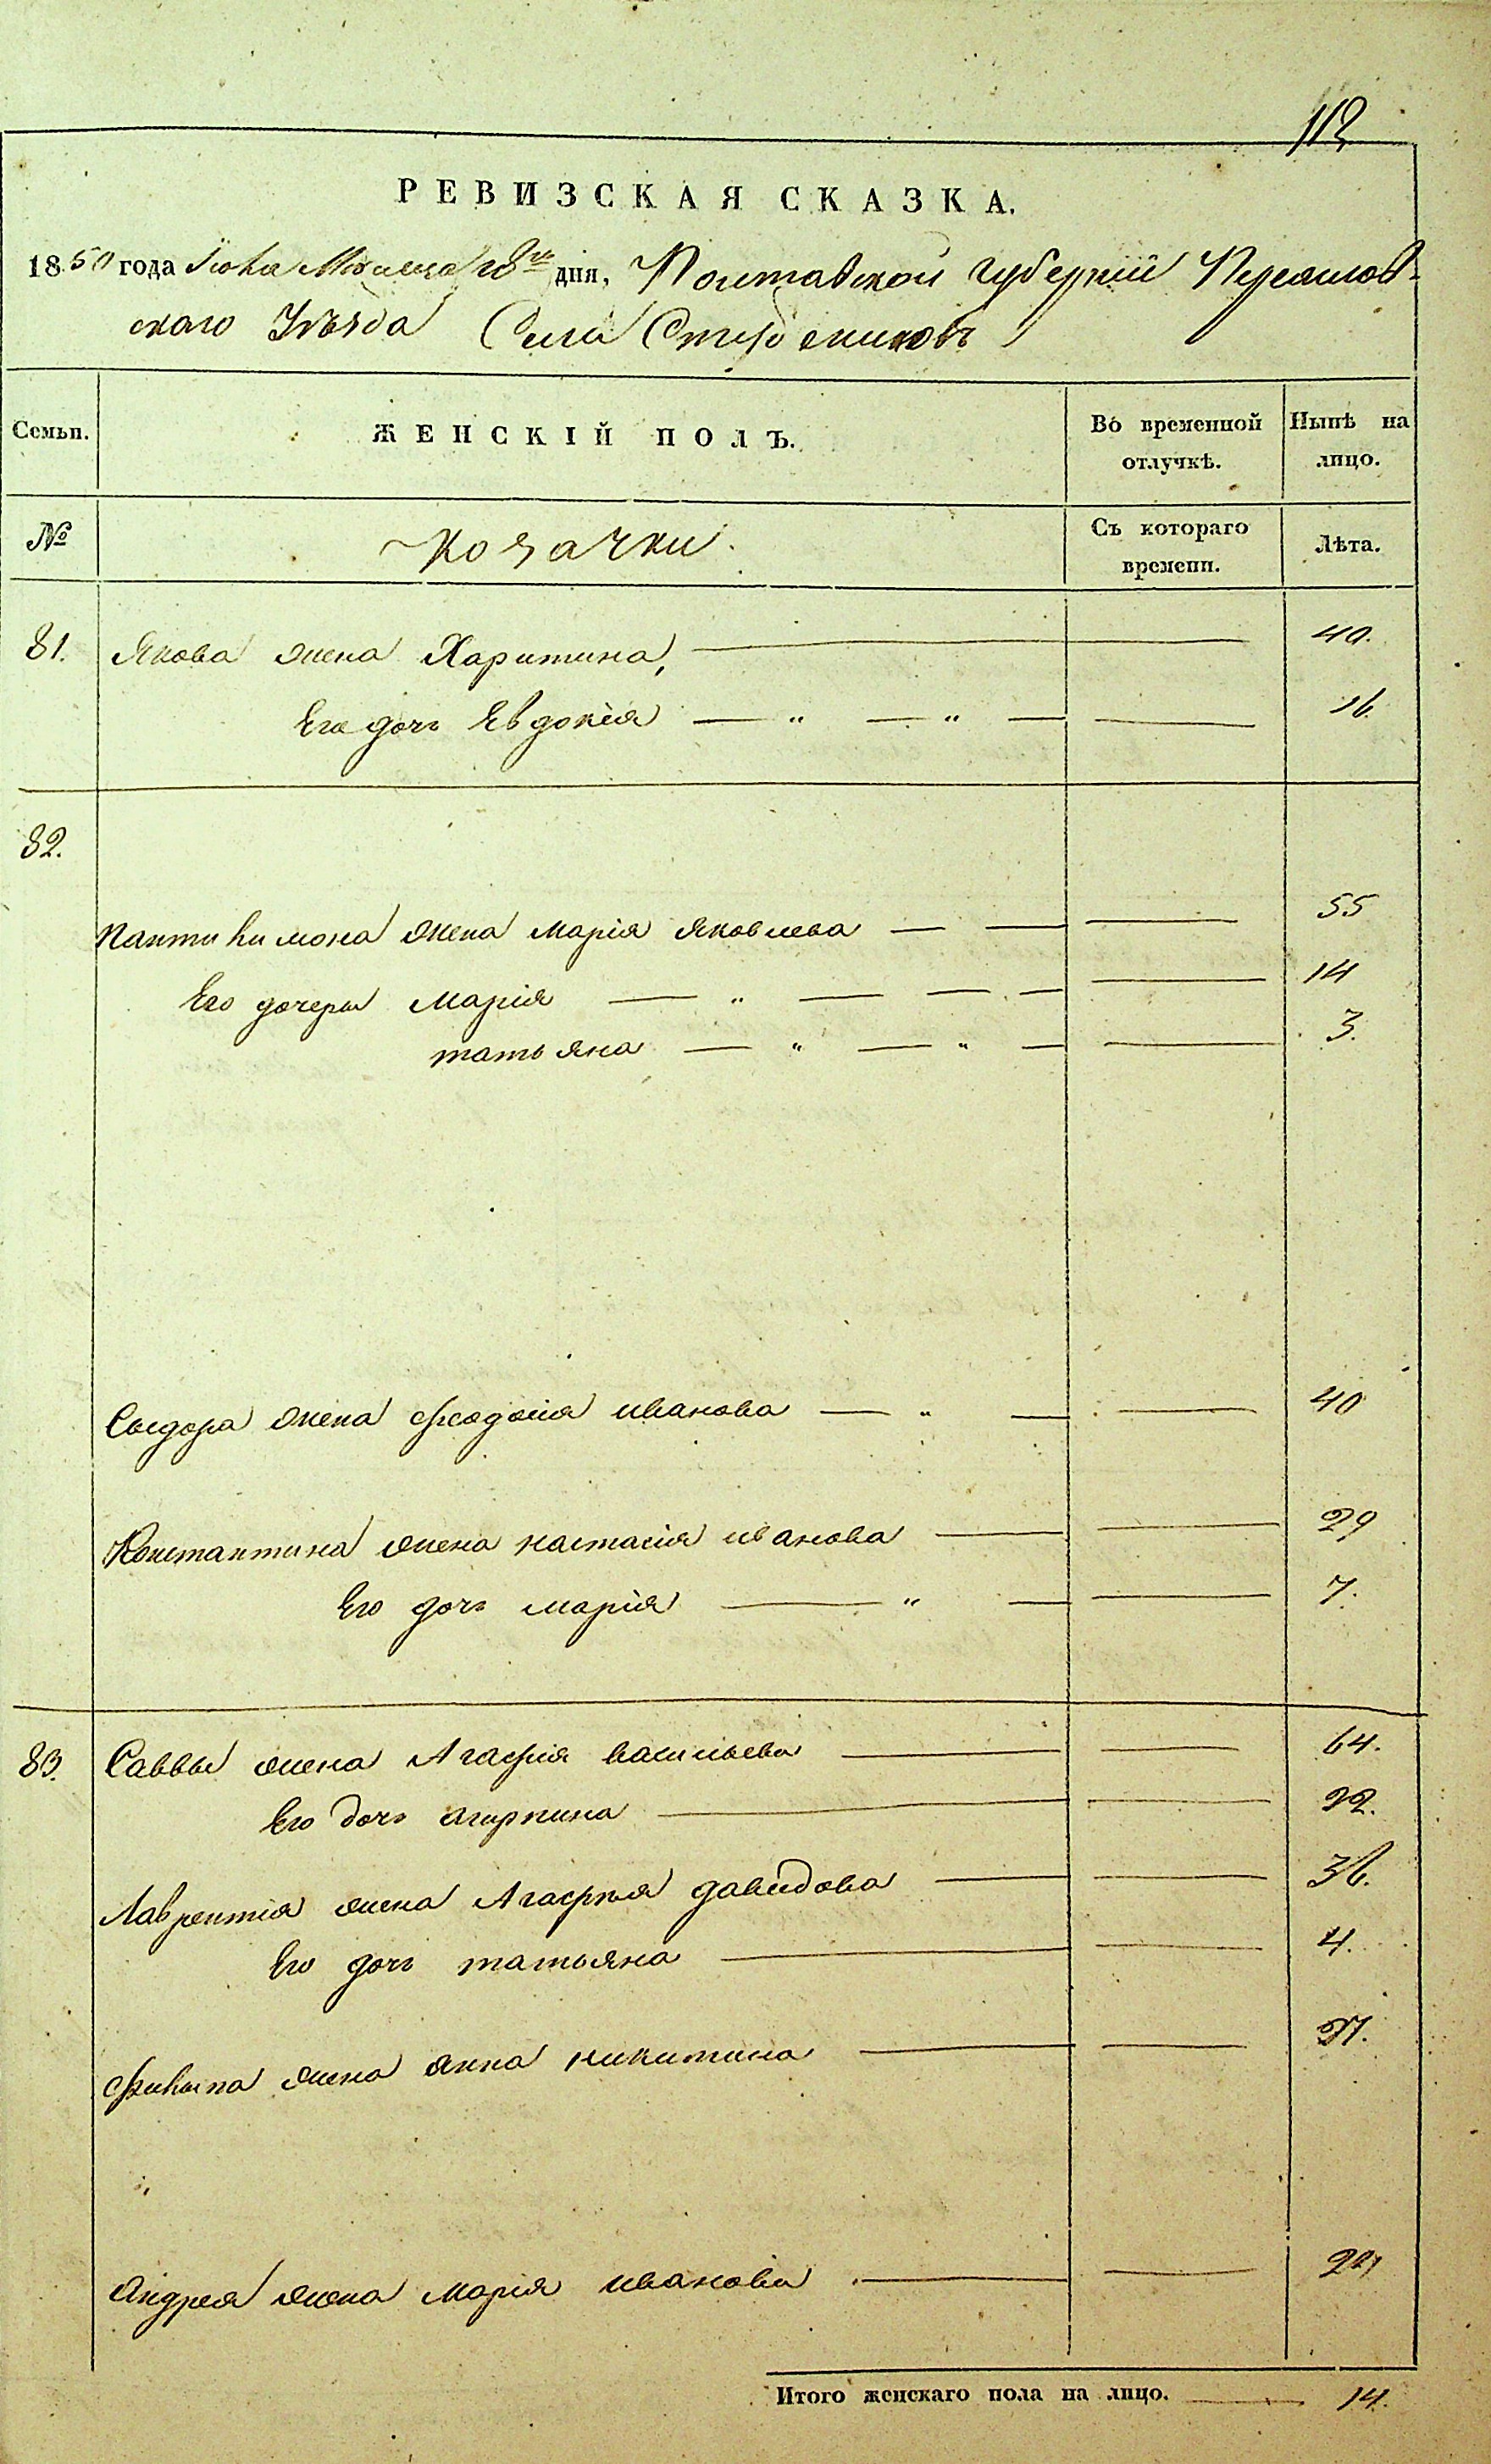 113
РЕВИЗСКАЯ СКАЗКА.
1850 года Іюля Мѣсяца 18го дня, Полтавской Губерніи Переяслов-
скаго Уѣзда Села
Семьи. ЖЕНСКІЙ ПОЛЪ. Во временной отлучкѣ. Нынѣ на лицо.
№ Козачки. Съ котораго времени. Лѣта.
81. Якова жена Харитина, 40.
Его дочь Евдокія — " — " — 16.
82.
Пантилимона жена Марія Яковлева — — 55
Его дочеры Марія — " — — — 14
татьяна — " — " — 3.
Сыдора жена Феодосія иванова — " — 40
Константина жена настасія иванова 29
Его дочь марія — " — 7.
83. Саввы жена Агафія васильева 64.
Его дочь агирпина 22.
Лаврентія жена Агафія давидова 36.
Его дочь татьяна 4.
Филыпа жена анна никитина
Андрея жена Марія иванова
Итого женскаго пола на лицо. 14.